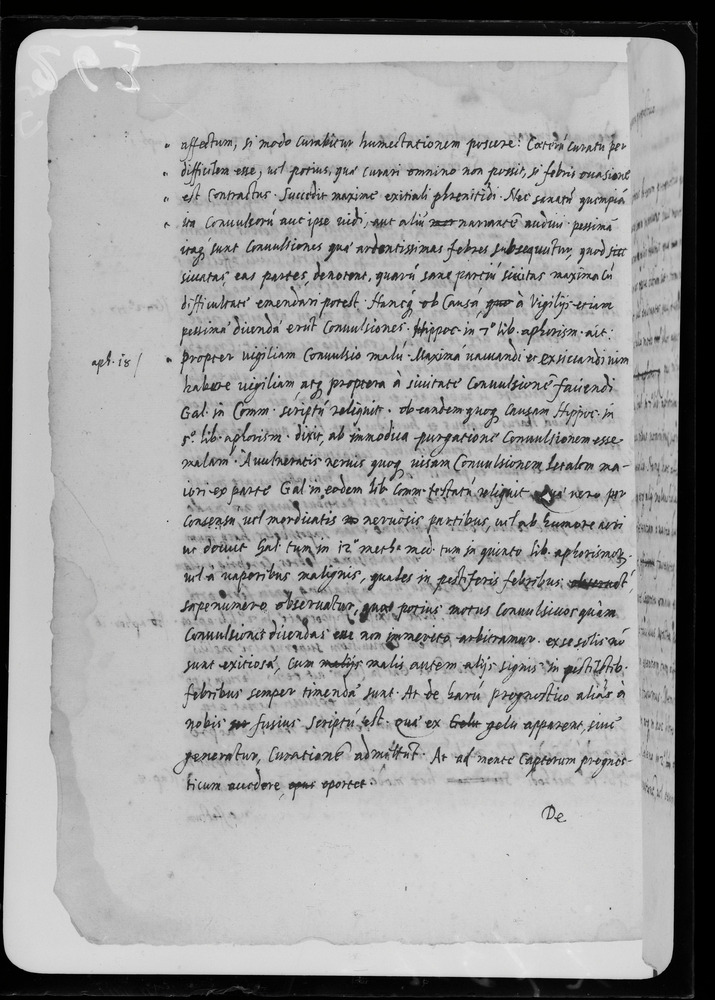 affectum, si modo curabitur humectationem poscere: Cæterū curatu per
difficilem esse, vel potius, quæ curari omnino non possit, si febris ovasione
est contractus. Succedit maxime exitiali phrenitidi. Nec sanatū quempiā
ita convulsorū aut ipse vidi, aut aliū narrantē audivi. pessimæ
itaq sunt convulsiones quæ ardentissimas febres subsequūtur, quod
siccatas eas partes denotent, quarū sane partiū siccitas maxima cū
difficultate emendari potest. Hancq ob causā à vigilijs etiam
pessimæ dicendæ erūt convulsiones. Hippoc. in 7º lib. aphorism. ait:
apħ. 18/
propter vigiliam convulsio malū. Maximā vacuandi et exsiccandi vim
habere vigiliam atq propterea à siccitate convulsionē faciendi
Gal. in Comm. scriptū reliquit. ob eandem quoq causam Hippoc. in
5º. lib. aphorism. dixit, ab immodica purgatione convulsionem esse
malam. A vulneratis nervis quoq visam convulsionem letalem ma-
iori ex parte Gal. in eodem lib. Comm. testatū reliquit. quæ vero per
consensū vel mordicatis nervosis partibus, vel ab humore acri
ut docuit Gal. tum in 12º meth. med. tum in quinto lib. aphorismor.
vel a vaporibus malignis, quales in pestiferis febribus
sæpenumero observatur, potius motus convulsivos quàm
convulsiones dicendas esse non immerito arbitramur. ex se solis nō
sunt exitiosæ, cum malis autem alijs signis in pestilētib.
febribus semper timendæ sunt. At de harū prognostico aliâs à
nobis fusius scriptū est. quæ ex gelu apparent, sive
generatur, curationē admittūt. At ad mente captorum prognos-
ticum accedere, oportet.
De